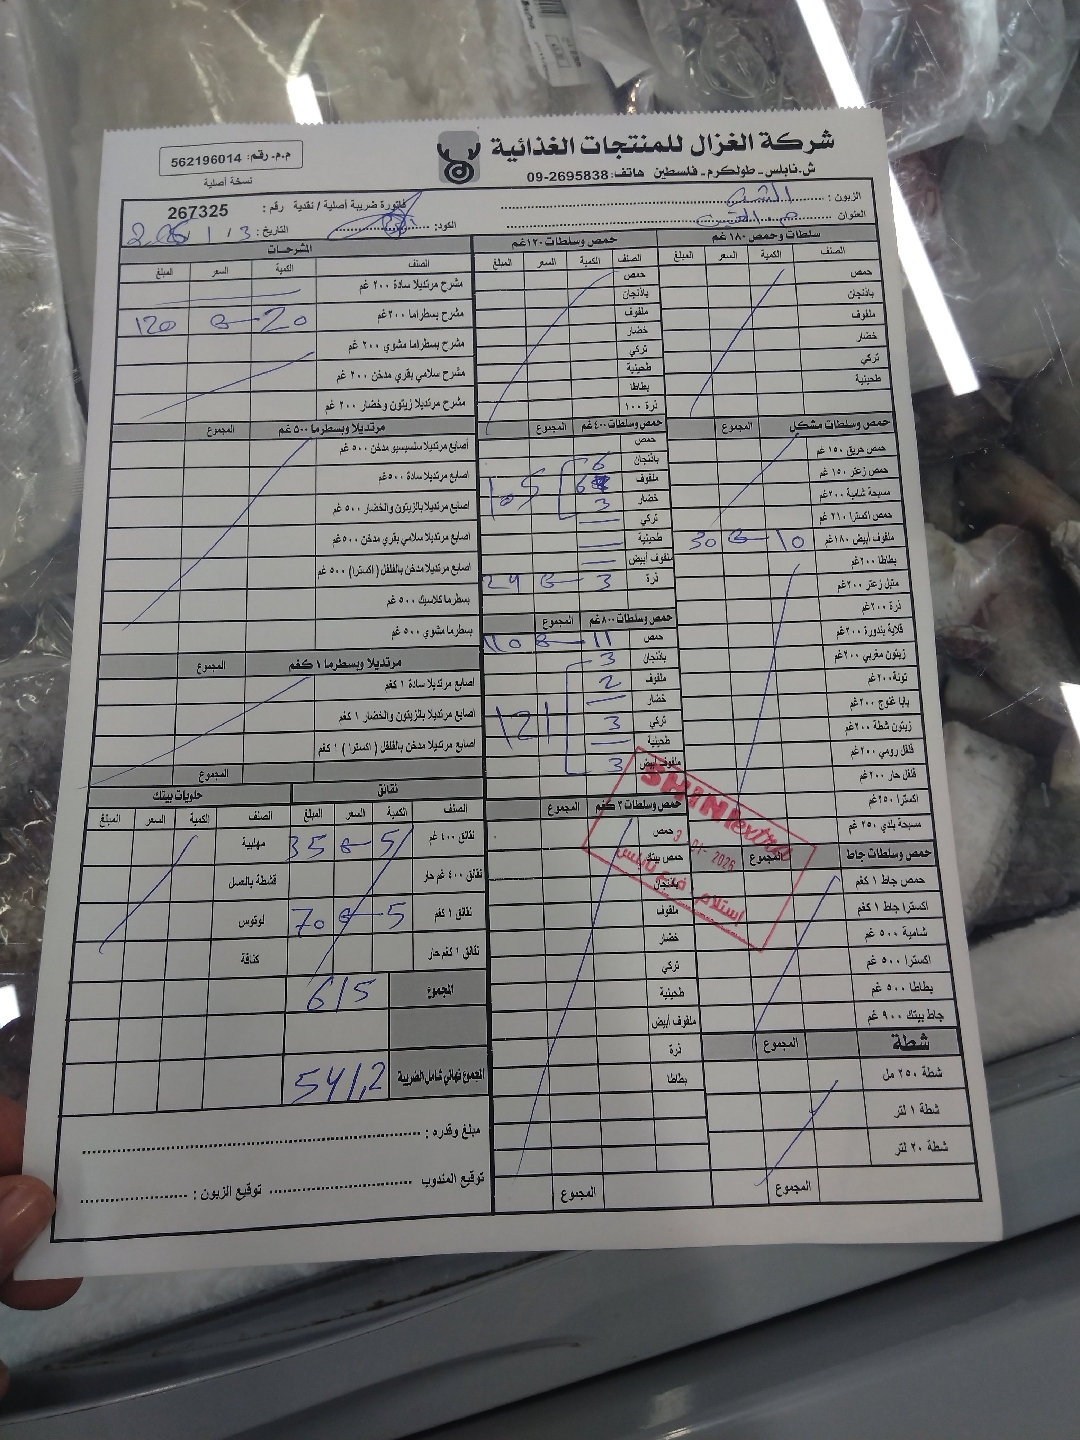 شركة الغزال للمنتجات الغذائية
ش.نابلس - طولكرم - فلسطين هاتف: 09-2695838
م.م. رقم: 562196014
نسخة أصلية
الزبون :
العنوان
فاتورة ضريبة أصلية / نقدية رقم : 267325
الكود:
التاريخ: 3 / 1 / 2026
سلطات وحمص ١٨٠ غم
الصنف الكمية السعر المبلغ
حمص
باذنجان
ملفوف
خضار
تركي
طحينية
حمص وسلطات مشكل المجموع
حمص حريق ١٥٠ غم
حمص زعتر ١٥٠ غم
مسبحة شامية ٢٠٠غم
حمص اكسترا ٢١٠ غم
ملفوف أبيض ١٨٠غم 10 3 30
بطاطا ٢٠٠غم
متبل زعتر ٢٠٠غم
ذرة ٢٠٠غم
قلاية بندورة ٢٠٠غم
زيتون مغربي ٢٠٠غم
تونة ٢٠٠غم
بابا غنوج ٢٠٠غم
زيتون شطة ٢٠٠غم
فلفل رومي ٢٠٠غم
فلفل حار ٢٠٠غم
اكسترا ٢٥٠غم
مسبحة بلدي ٢٥٠ غم
حمص وسلطات جاط المجموع
حمص جاط ١ كغم
اكسترا جاط ١ كغم
شامية ٥٠٠ غم
اكسترا ٥٠٠ غم
بطاطا ٥٠٠ غم
جاط بيتك ٩٠٠ غم
شطة المجموع
شطة ٢٥٠ مل
شطة ١ لتر
شطة ٢٠ لتر
المجموع
حمص وسلطات ١٢٠غم
الصنف الكمية السعر المبلغ
حمص
باذنجان
ملفوف
خضار
تركي
طحينية
بطاطا
ذرة ١٠٠
حمص وسلطات ٤٠٠ غم المجموع
حمص
باذنجان 6
ملفوف 6
خضار 3
105
تركي
طحينية
ملفوف أبيض
ذرة 3 8 24
حمص وسلطات ٨٠٠غم المجموع
حمص 11 110
باذنجان 3
ملفوف 2
خضار
تركي 3
121
طحينية
ملفوف أبيض 3
حمص وسلطات ٣ كغم المجموع
حمص
حمص بيتك
باذنجان
ملفوف
خضار
تركي
طحينية
ملفوف أبيض
ذرة
بطاطا
المجموع
SHINI extra
3 -01- 2026
إستلام / فرع نابلس
المشرحات
الصنف الكمية السعر المبلغ
مشرح مرتديلا سادة ٢٠٠ غم
مشرح بسطراما ٢٠٠غم 20 6 120
مشرح بسطراما مشوي ٢٠٠ غم
مشرح سلامي بقري مدخن ٢٠٠ غم
مشرح مرتديلا زيتون وخضار ٢٠٠ غم
مرتديلا وبسطرما ٥٠٠ غم المجموع
اصابع مرتديلا سلسيسيو مدخن ٥٠٠ غم
اصابع مرتديلا سادة ٥٠٠غم
اصابع مرتديلا بالزيتون والخضار ٥٠٠ غم
اصابع مرتديلا سلامي بقري مدخن ٥٠٠غم
اصابع مرتديلا مدخن بالفلفل ( اكسترا) ٥٠٠ غم
بسطرما كلاسيك ٥٠٠ غم
بسطرما مشوي ٥٠٠ غم
مرتديلا وبسطرما ١ كغم المجموع
اصابع مرتديلا سادة ١ كغم
اصابع مرتديلا بالزيتون والخضار ١ كغم
اصابع مرتديلا مدخن بالفلفل ( اكسترا ) ١ كغم
المجموع
نقانق
الصنف الكمية السعر المبلغ
نقانق ٤٠٠ غم 5 35
نقانق ٤٠٠ غم حار
نقانق ١ كغم 5 70
نقانق ١ كغم حار
حلويات بيتك
الصنف الكمية السعر المبلغ
مهلبية
قشطة بالعسل
لوتوس
كنافة
المجموع 615
المجموع نهائي شامل الضريبة 541,2
مبلغ وقدره :
توقيع المندوب توقيع الزبون :